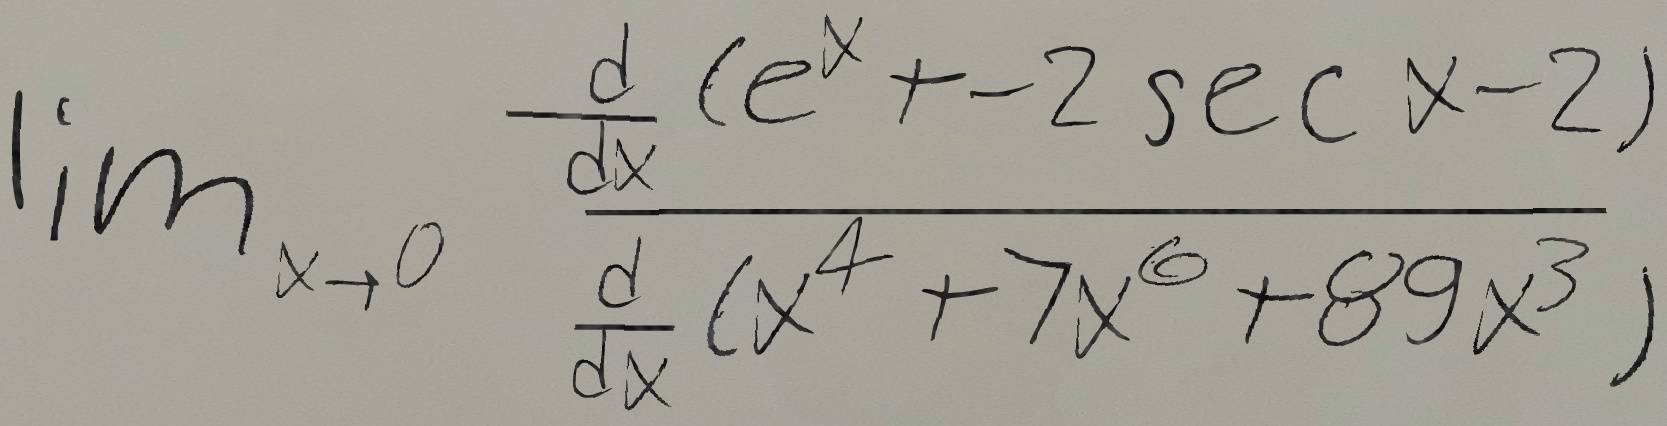 \lim_{x \to 0} \frac{\frac{d}{dx}(e^x + -2 \sec x - 2)}{\frac{d}{dx}(x^4 + 7x^6 + 89x^3)}